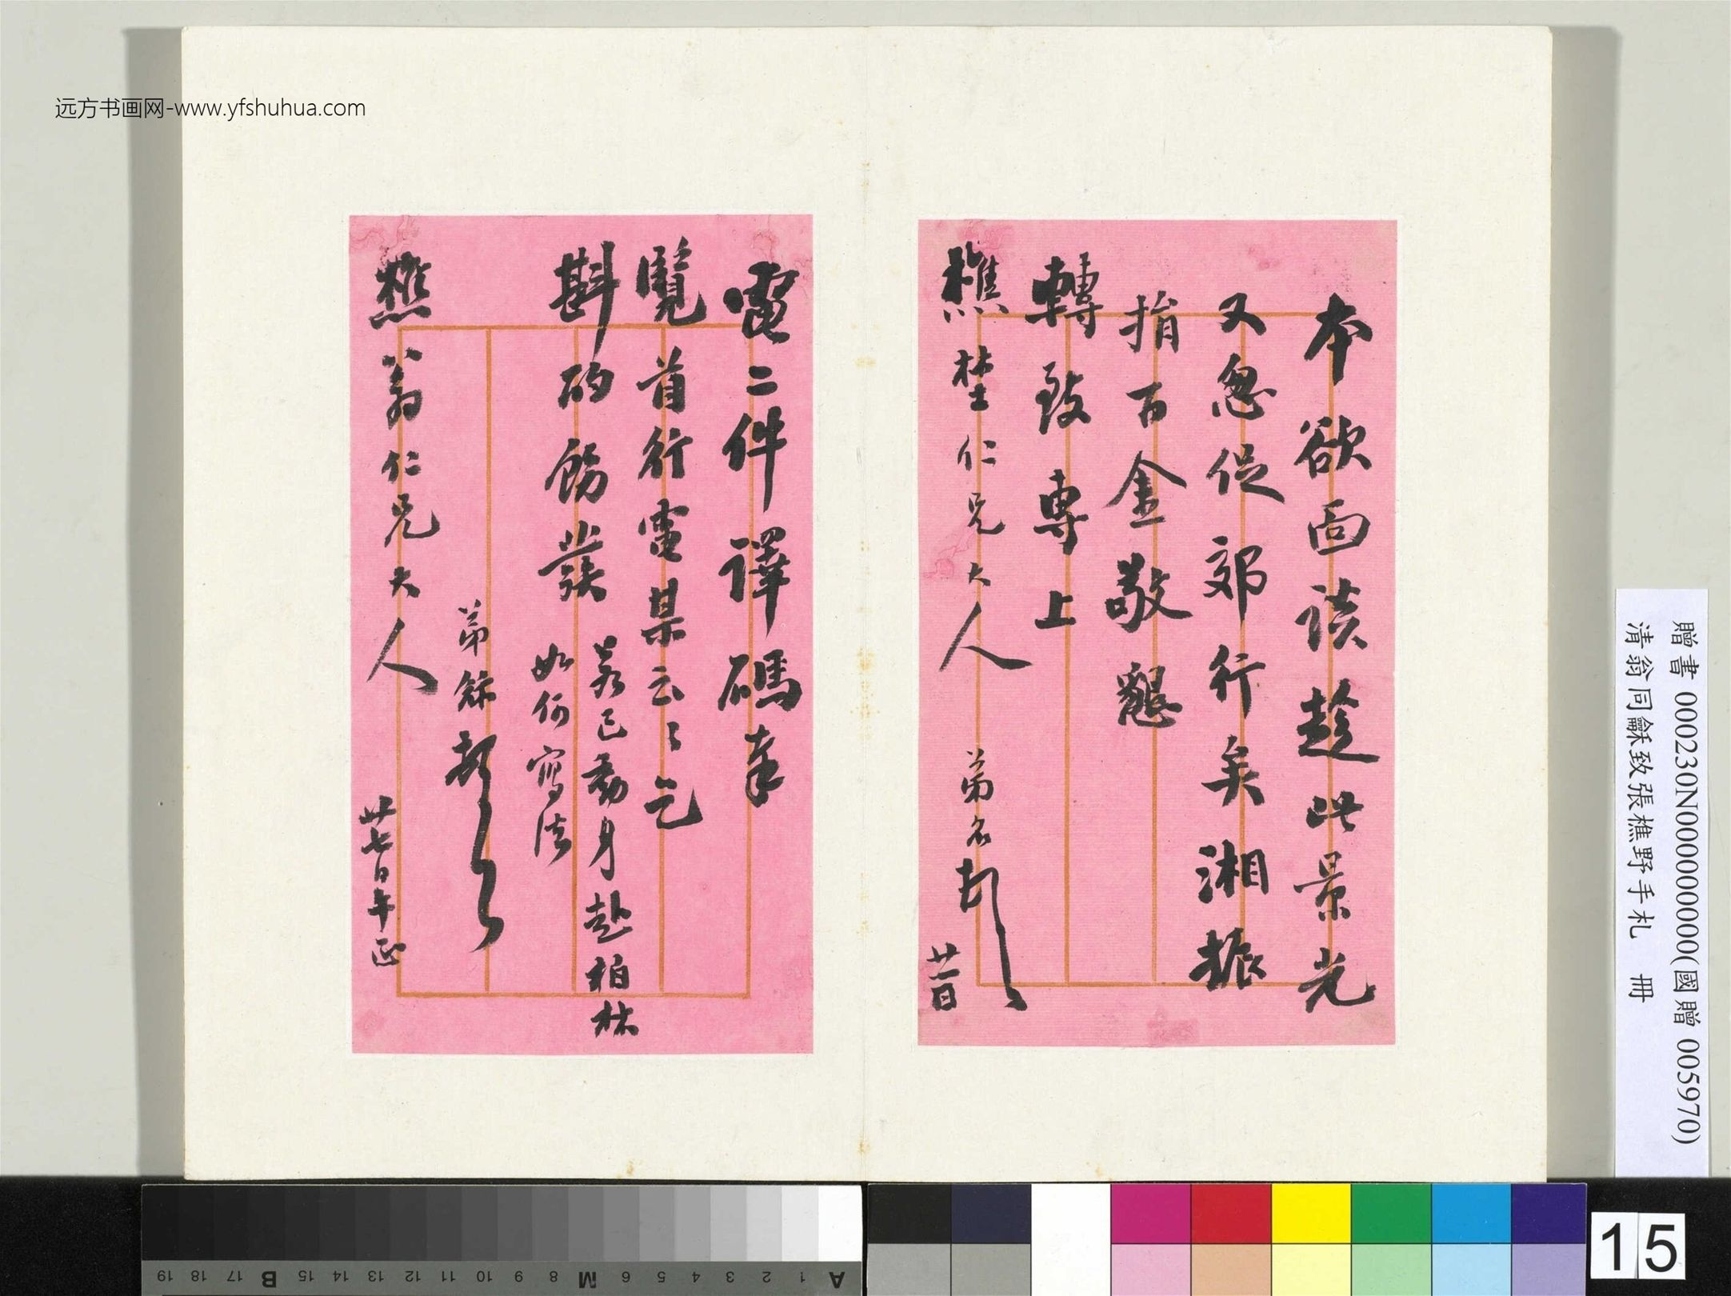 远方书画网-www.yfshuhua.com
本欲面談趁此景光
又忽促郊行矣湘振
捐百金敬懇
轉致專上
樵埜仁兄大人
弟名頓
廿一日
電二件譯碼奉
覽首行電某云々乞
斟酌飭發
若已動身赴柏林
如何寫法
樵翁仁兄大人
弟龢頓
廿七日午正
贈書 000230N000000000(國贈 005970)
清翁同龢致張樵野手札 冊
15
A 1 2 3 4 5 6 M 8 9 10 11 12 13 14 15 B 17 18 19